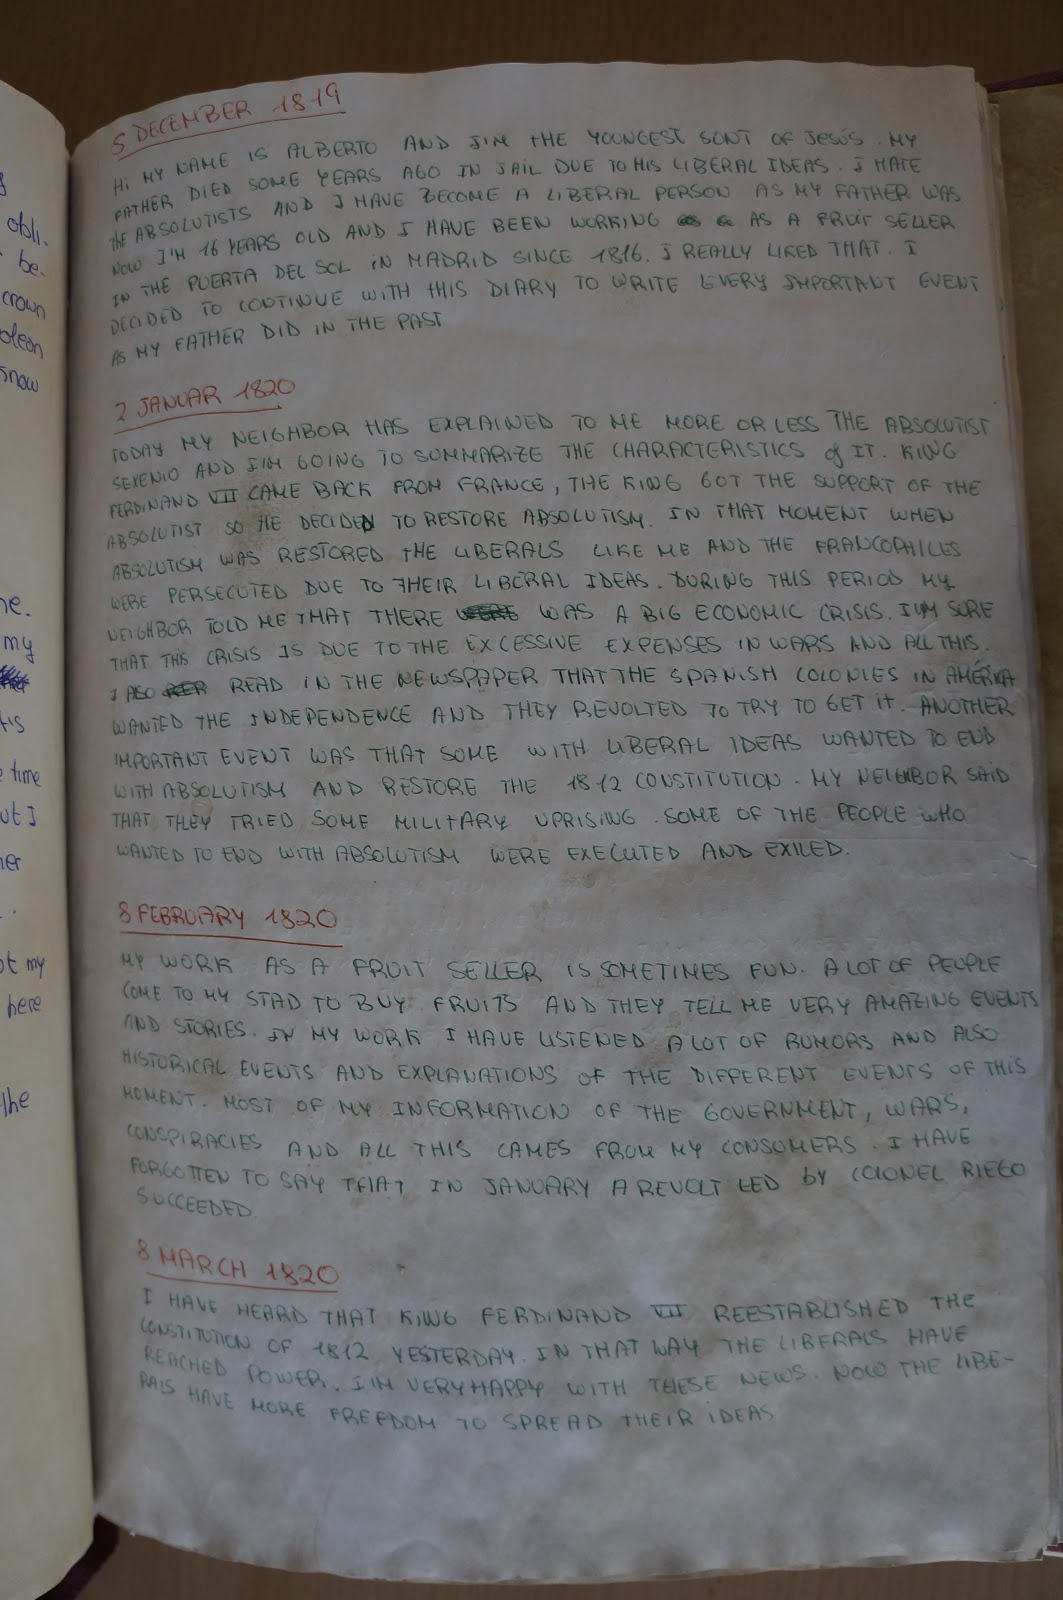 obli-
be-
crown
snow
me.
my
time
but I
my
here
the
5 DECEMBER 1819
Hi MY NAME IS ALBERTO AND I'M THE YOUNGEST SONT OF Jesús. MY
FATHER DIED SOME YEARS AGO IN JAIL DUE TO HIS LIBERAL IDEAS. I HATE
THE ABSOLUTISTS AND I HAVE BECOME A LIBERAL PERSON AS MY FATHER WAS
NOW I'M 16 YEARS OLD AND I HAVE BEEN WORKING AS A FRUIT SELLER
IN THE PUERTA DEL SOL IN MADRID SINCE 1816. I REALLY LIKED THAT. I
DECIDED TO CONTINUE WITH THIS DIARY TO WRITE EVERY IMPORTANT EVENT
AS MY FATHER DID IN THE PAST
2 JANUAR 1820
TODAY MY NEIGHBOR HAS EXPLAINED TO ME MORE OR LESS THE ABSOLUTIST
SEXENIO AND I'M GOING TO SUMMARIZE THE CHARACTERISTICS of IT. KING
FERDINAND VII CAME BACK FROM FRANCE, THE KING GOT THE SUPPORT OF THE
ABSOLUTIST SO HE DECIDED TO RESTORE ABSOLUTISM. IN THAT MOMENT WHEN
ABSOLUTISM WAS RESTORED THE LIBERALS LIKE ME AND THE FRANCOPHILES
WERE PERSECUTED DUE TO THEIR LIBERAL IDEAS. DURING THIS PERIOD MY
NEIGHBOR TOLD ME THAT THERE WAS A BIG ECONOMIC CRISIS. I'M SURE
THAT THIS CRISIS IS DUE TO THE EXCESSIVE EXPENSES IN WARS AND ALL THIS.
I ALSO READ IN THE NEWSPAPER THAT THE SPANISH COLONIES IN AMÉRICA
WANTED THE INDEPENDENCE AND THEY REVOLTED TO TRY TO GET IT. ANOTHER
IMPORTANT EVENT WAS THAT SOME WITH LIBERAL IDEAS WANTED TO END
WITH ABSOLUTISM AND RESTORE THE 1812 CONSTITUTION. MY NEIGHBOR SAID
THAT THEY TRIED SOME MILITARY UPRISING. SOME OF THE PEOPLE WHO
WANTED TO END WITH ABSOLUTISM WERE EXECUTED AND EXILED.
8 FEBRUARY 1820
MY WORK AS A FRUIT SELLER IS SOMETIMES FUN. A LOT OF PEOPLE
COME TO MY STAD TO BUY FRUITS AND THEY TELL ME VERY AMAZING EVENTS
AND STORIES. IN MY WORK I HAVE LISTENED A LOT OF RUMORS AND ALSO
HISTORICAL EVENTS AND EXPLANATIONS OF THE DIFFERENT EVENTS OF THIS
MOMENT. MOST OF MY INFORMATION OF THE GOVERNMENT, WARS,
CONSPIRACIES AND ALL THIS CAMES FROM MY CONSUMERS. I HAVE
FORGOTTEN TO SAY THAT IN JANUARY A REVOLT LED by COLONEL RIEGO
SUCCEEDED
8 MARCH 1820
I HAVE HEARD THAT KING FERDINAND VII REESTABLISHED THE
CONSTITUTION OF 1812 YESTERDAY. IN THAT WAY THE LIBERALS HAVE
REACHED POWER. I'M VERY HAPPY WITH THESE NEWS. NOW THE LIBE-
RALS HAVE MORE FREEDOM TO SPREAD THEIR IDEAS